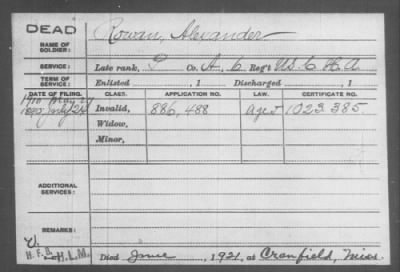 DEAD
NAME OF SOLDIER:
Rowan, Alexander
SERVICE:
Late rank, P Co. A, 6 Reg't U.S.C.H.A
TERM OF SERVICE:
Enlisted , 1 Discharged , 1
DATE OF FILING. CLASS. APPLICATION NO. LAW. CERTIFICATE NO.
1910 May
1890 July 24 Invalid, 886,488 1023.385.
Widow,
Minor,
ADDITIONAL SERVICES:
REMARKS:
H.F.B. H.L.M. Died June , 1921, at Cranfield, Miss.